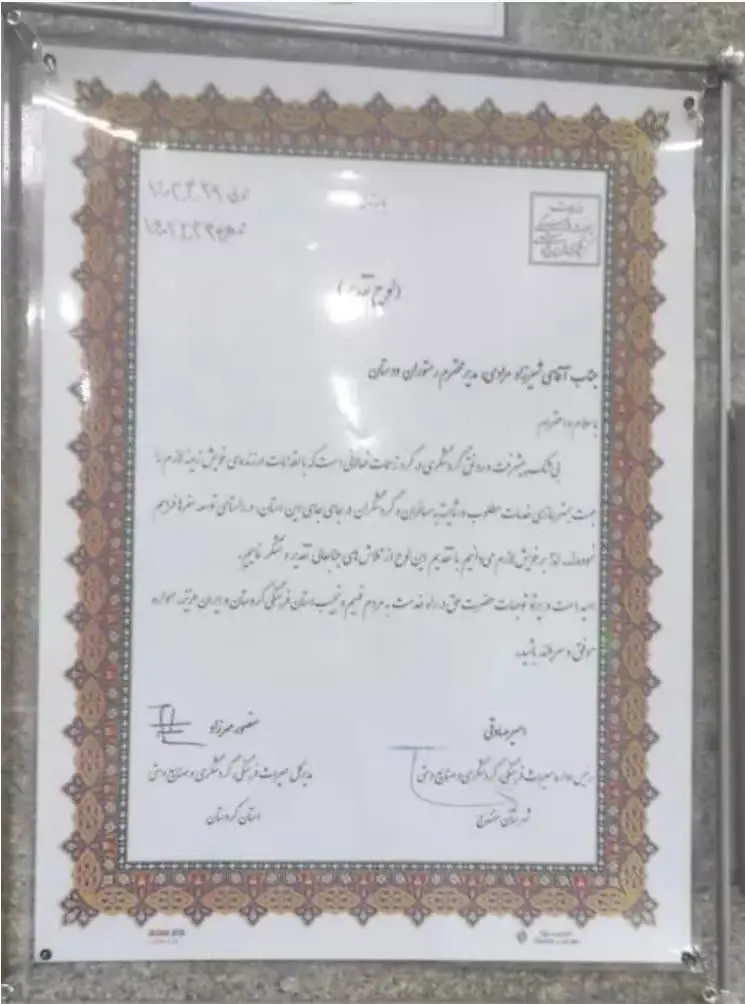 (لوح تقدیر)
جناب آقای شیرزاد مرادی، مدیر محترم رستوران دوستان
با سلام و احترام
بی شک پیشرفت و رونق گردشگری در گرو زحمات فعالانی است که با اقدامات ارزنده‌ی خویش زمینه لازم را
جهت بستر سازی خدمات مطلوب و شایسته به مسافران و گردشگران در جای جای این استان، در راستای توسعه سفرها فراهم
نموده‌اند. لذا بر خویش لازم می‌دانیم با تقدیم این لوح از تلاش های جنابعالی تقدیر و تشکر نماییم.
امید است در پرتو توجهات حضرت حق در راه خدمت به مردم فهیم و نجیب استان فرهنگی کردستان و ایران عزیز، همواره
موفق و سربلند باشید.
امیر صادقی
منصور مهرزاد
رئیس اداره میراث فرهنگی، گردشگری و صنایع دستی
مدیرکل میراث فرهنگی، گردشگری و صنایع دستی
شهرستان سنندج
استان کردستان